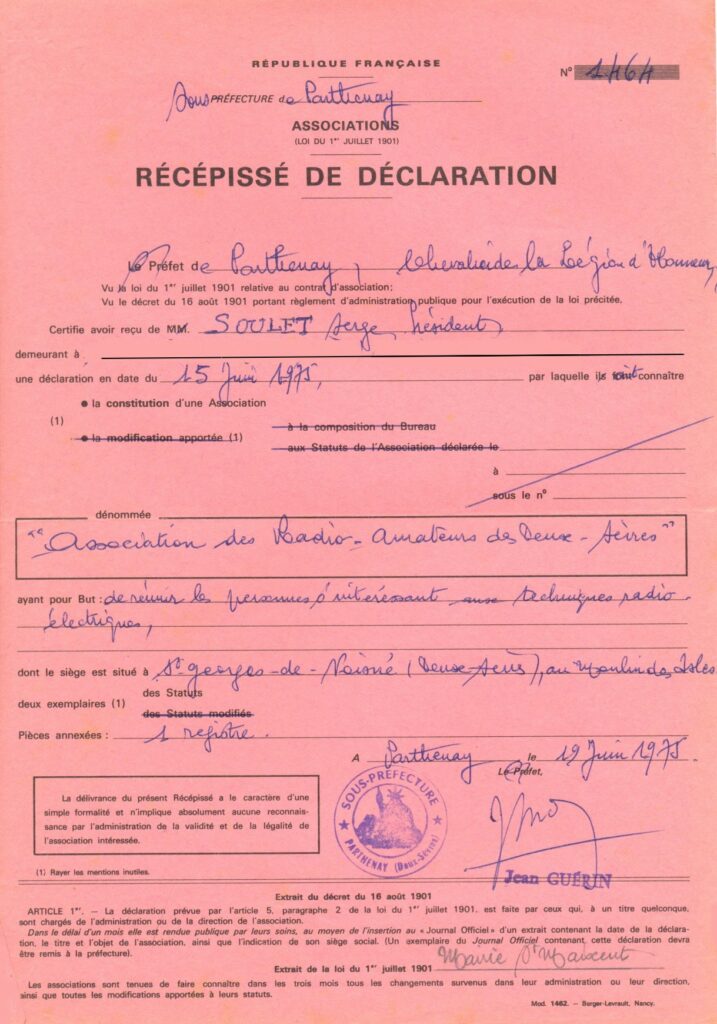 RÉPUBLIQUE FRANÇAISE
N° 1464
Sous PRÉFECTURE de Parthenay
ASSOCIATIONS
(LOI DU 1er JUILLET 1901)
RÉCÉPISSÉ DE DÉCLARATION
Le Préfet de Parthenay, Chevalier de la Légion d'Honneur,
Vu la loi du 1er juillet 1901 relative au contrat d'association;
Vu le décret du 16 août 1901 portant règlement d'administration publique pour l'exécution de la loi précitée,
Certifie avoir reçu de MM. SOULET Serge, Président
demeurant à
une déclaration en date du 15 Juin 1975, par laquelle ils font connaître
• la constitution d'une Association
(1)
• la modification apportée (1)
à la composition du Bureau
aux Statuts de l'Association déclarée le
à
sous le n°
dénommée
"Association des Radio-Amateurs des Deux-Sèvres"
ayant pour But : de réunir les personnes s'intéressant aux techniques radio-
électriques,
dont le siège est situé à St georges-de-Noisné (Deux-Sèvres), au Moulin des Isles
deux exemplaires (1)
des Statuts
des Statuts modifiés
Pièces annexées : 1 registre.
A Parthenay le 19 Juin 1975.
Le Préfet,
SOUS-PRÉFECTURE
PARTHENAY (Deux-Sèvres)
Jean GUÉRIN
La délivrance du présent Récépissé a le caractère d'une
simple formalité et n'implique absolument aucune reconnais-
sance par l'administration de la validité et de la légalité de
l'association intéressée.
(1) Rayer les mentions inutiles.
Extrait du décret du 16 août 1901
ARTICLE 1er. — La déclaration prévue par l'article 5, paragraphe 2 de la loi du 1er juillet 1901, est faite par ceux qui, à un titre quelconque,
sont chargés de l'administration ou de la direction de l'association.
Dans le délai d'un mois elle est rendue publique par leurs soins, au moyen de l'insertion au « Journal Officiel » d'un extrait contenant la date de la déclara-
tion, le titre et l'objet de l'association, ainsi que l'indication de son siège social (Un exemplaire du Journal Officiel contenant cette déclaration devra
être remis à la préfecture).
Mairie St Maixent
Extrait de la loi du 1er juillet 1901
Les associations sont tenues de faire connaître dans les trois mois tous les changements survenus dans leur administration ou leur direction,
ainsi que toutes les modifications apportées à leurs statuts.
Mod. 1462. - Berger-Levrault, Nancy.